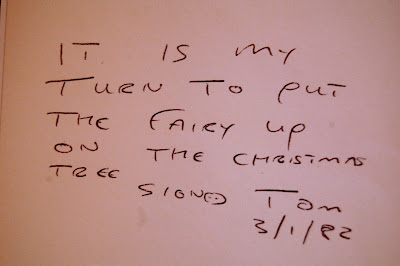 IT IS MY
TURN TO PUT
THE FAIRY UP
ON THE CHRISTMAS
TREE
SIGNED TOM
3/1/82